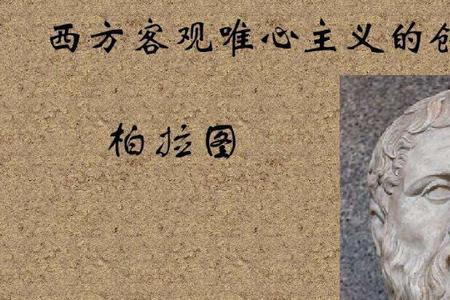 西方客观唯心主义的创
柏拉图